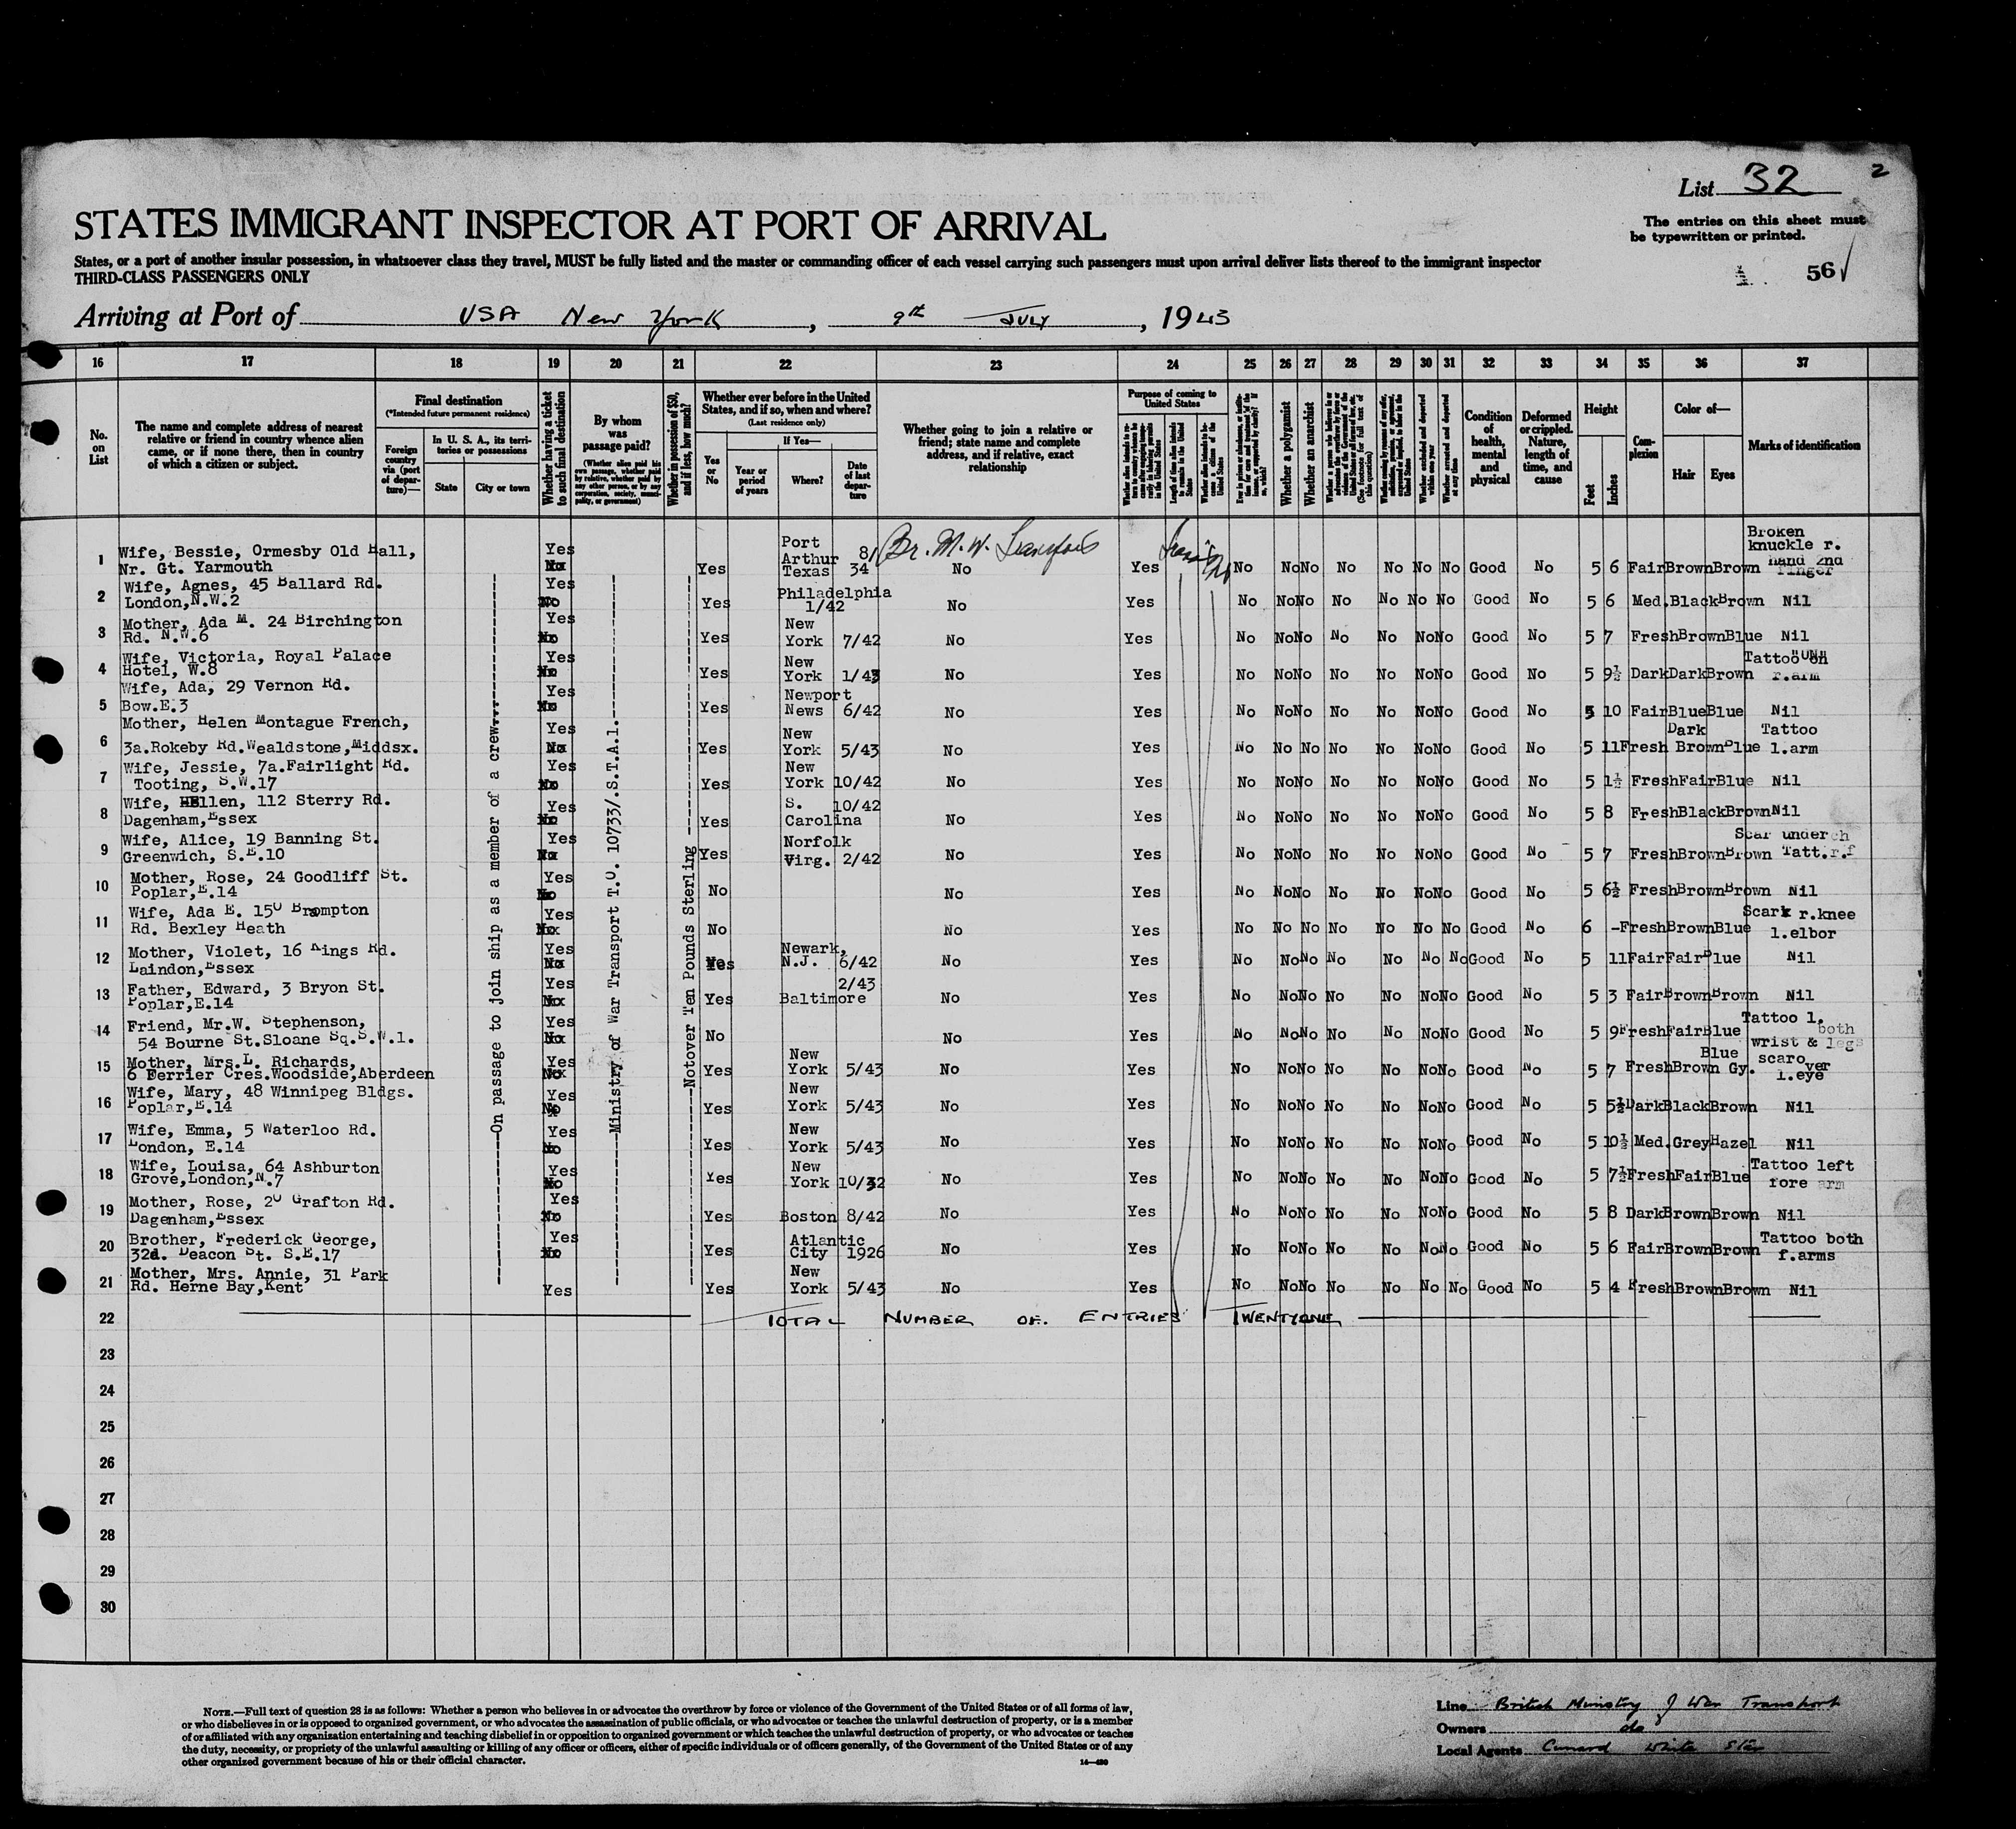 List 32 2
STATES IMMIGRANT INSPECTOR AT PORT OF ARRIVAL
The entries on this sheet must be typewritten or printed.
States, or a port of another insular possession, in whatsoever class they travel, MUST be fully listed and the master or commanding officer of each vessel carrying such passengers must upon arrival deliver lists thereof to the immigrant inspector
THIRD-CLASS PASSENGERS ONLY
56
Arriving at Port of USA New York, 9th July, 1943
16 17 18 19 20 21 22 23 24 25 26 27 28 29 30 31 32 33 34 35 36 37
No. on List
The name and complete address of nearest relative or friend in country whence alien came, or if none there, then in country of which a citizen or subject.
Final destination
(*Intended future permanent residence)
Foreign country via (port of departure)—
In U. S. A., its territories or possessions
State City or town
Whether having a ticket to such final destination
By whom was passage paid?
(Whether alien paid his own passage, whether paid by relative, whether paid by any other person, or by any corporation, society, municipality, or government)
Whether in possession of $50, and if less, how much?
Whether ever before in the United States, and if so, when and where?
(Last residence only)
Yes or No
If Yes—
Year or period of years
Where?
Date of last departure
Whether going to join a relative or friend; state name and complete address, and if relative, exact relationship
Purpose of coming to United States
Length of time alien intends to remain in the United States
Whether alien intends to become a citizen of the United States
Whether a polygamist
Whether an anarchist
Whether excluded and deported within one year
Whether arrested and deported at any time
Condition of health, mental and physical
Deformed or crippled. Nature, length of time, and cause
Height
Feet Inches
Complexion
Color of—
Hair Eyes
Marks of identification
On passage to join ship as a member of a crew
Ministry of War Transport T.O. 10733/.S.T.A.1.
Notover Ten Pounds Sterling
Br. M. W.
1 Wife, Bessie, Ormesby Old Hall, Nr. Gt. Yarmouth Yes Yes Port Arthur Texas 8/34 No Yes No No No No No No No Good No 5 6 Fair Brown Brown Broken knuckle r. hand 2nd finger
2 Wife, Agnes, 45 Ballard Rd. London, N.W.2 Yes Yes Philadelphia 1/42 No Yes No No No No No No No Good No 5 6 Med. Black Brown Nil
3 Mother, Ada M. 24 Birchington Rd. N.W.6 Yes Yes New York 7/42 No Yes No No No No No No No Good No 5 7 Fresh Brown Blue Nil
4 Wife, Victoria, Royal Palace Hotel, W.8 Yes Yes New York 1/43 No Yes No No No No No No No Good No 5 9½ Dark Dark Brown Tattoo on r.arm
5 Wife, Ada, 29 Vernon Rd. Bow.E.3 Yes Yes Newport News 6/42 No Yes No No No No No No No Good No 5 10 Fair Blue Blue Nil
6 Mother, Helen Montague French, 3a.Rokeby Rd.Wealdstone,Middsx. Yes Yes New York 5/43 No Yes No No No No No No No Good No 5 11 Fresh Dark Brown Blue Tattoo l.arm
7 Wife, Jessie, 7a.Fairlight Rd. Tooting, S.W.17 Yes Yes New York 10/42 No Yes No No No No No No No Good No 5 1½ Fresh Fair Blue Nil
8 Wife, Ellen, 112 Sterry Rd. Dagenham,Essex Yes Yes S. Carolina 10/42 No Yes No No No No No No No Good No 5 8 Fresh Black Brown Nil
9 Wife, Alice, 19 Banning St. Greenwich, S.E.10 Yes Yes Norfolk Virg. 2/42 No Yes No No No No No No No Good No 5 7 Fresh Brown Brown Scar under ch Tatt.r.f
10 Mother, Rose, 24 Goodliff St. Poplar,E.14 Yes No No Yes No No No No No No No Good No 5 6½ Fresh Brown Brown Nil
11 Wife, Ada E. 150 Brompton Rd. Bexley Heath Yes No No Yes No No No No No No No Good No 6 - Fresh Brown Blue Scar r.knee l.elbor
12 Mother, Violet, 16 Kings Rd. Laindon,Essex Yes Yes Newark, N.J. 6/42 No Yes No No No No No No No Good No 5 11 Fair Fair Blue Nil
13 Father, Edward, 3 Bryon St. Poplar,E.14 Yes Yes Baltimore 2/43 No Yes No No No No No No No Good No 5 3 Fair Brown Brown Nil
14 Friend, Mr.W. Stephenson, 54 Bourne St.Sloane Sq.S.W.1. Yes No No Yes No No No No No No No Good No 5 9 Fresh Fair Blue Tattoo l. wrist & both legs
15 Mother, Mrs.L. Richards, 6 Ferrier Cres.Woodside,Aberdeen Yes Yes New York 5/43 No Yes No No No No No No No Good No 5 7 Fresh Brown Blue Gy. scar over l.eye
16 Wife, Mary, 48 Winnipeg Bldgs. Poplar,E.14 Yes Yes New York 5/43 No Yes No No No No No No No Good No 5 5½ Dark Black Brown Nil
17 Wife, Emma, 5 Waterloo Rd. London, E.14 Yes Yes New York 5/43 No Yes No No No No No No No Good No 5 10½ Med. Grey Hazel Nil
18 Wife, Louisa, 64 Ashburton Grove,London,N.7 Yes Yes New York 10/32 No Yes No No No No No No No Good No 5 7½ Fresh Fair Blue Tattoo left fore arm
19 Mother, Rose, 20 Grafton Rd. Dagenham,Essex Yes Yes Boston 8/42 No Yes No No No No No No No Good No 5 8 Dark Brown Brown Nil
20 Brother, Frederick George, 32d. Deacon St. S.E.17 Yes Yes Atlantic City 1926 No Yes No No No No No No No Good No 5 6 Fair Brown Brown Tattoo both f.arms
21 Mother, Mrs. Annie, 31 Park Rd. Herne Bay,Kent Yes Yes New York 5/43 No Yes No No No No No No No Good No 5 4 Fresh Brown Brown Nil
22 TOTAL NUMBER OF ENTRIES TWENTYONE
23
24
25
26
27
28
29
30
NOTE.—Full text of question 28 is as follows: Whether a person who believes in or advocates the overthrow by force or violence of the Government of the United States or of all forms of law,
or who disbelieves in or is opposed to organized government, or who advocates the assassination of public officials, or who advocates or teaches the unlawful destruction of property, or is a member
of or affiliated with any organization entertaining and teaching disbelief in or opposition to organized government or which teaches the unlawful destruction of property, or who advocates or teaches
the duty, necessity, or propriety of the unlawful assaulting or killing of any officer or officers, either of specific individuals or of officers generally, of the Government of the United States or of any
other organized government because of his or their official character.
Line British Ministry of War Transport
Owners do
Local Agents Cunard White Star